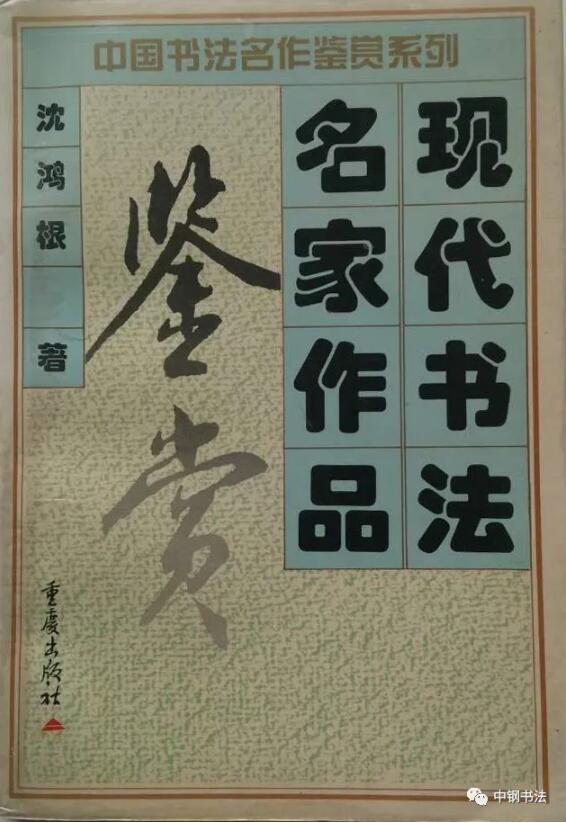 中国书法名作鉴赏系列
现代书法
名家作品
鉴赏
沈鸿根 著
重庆出版社
中钢书法